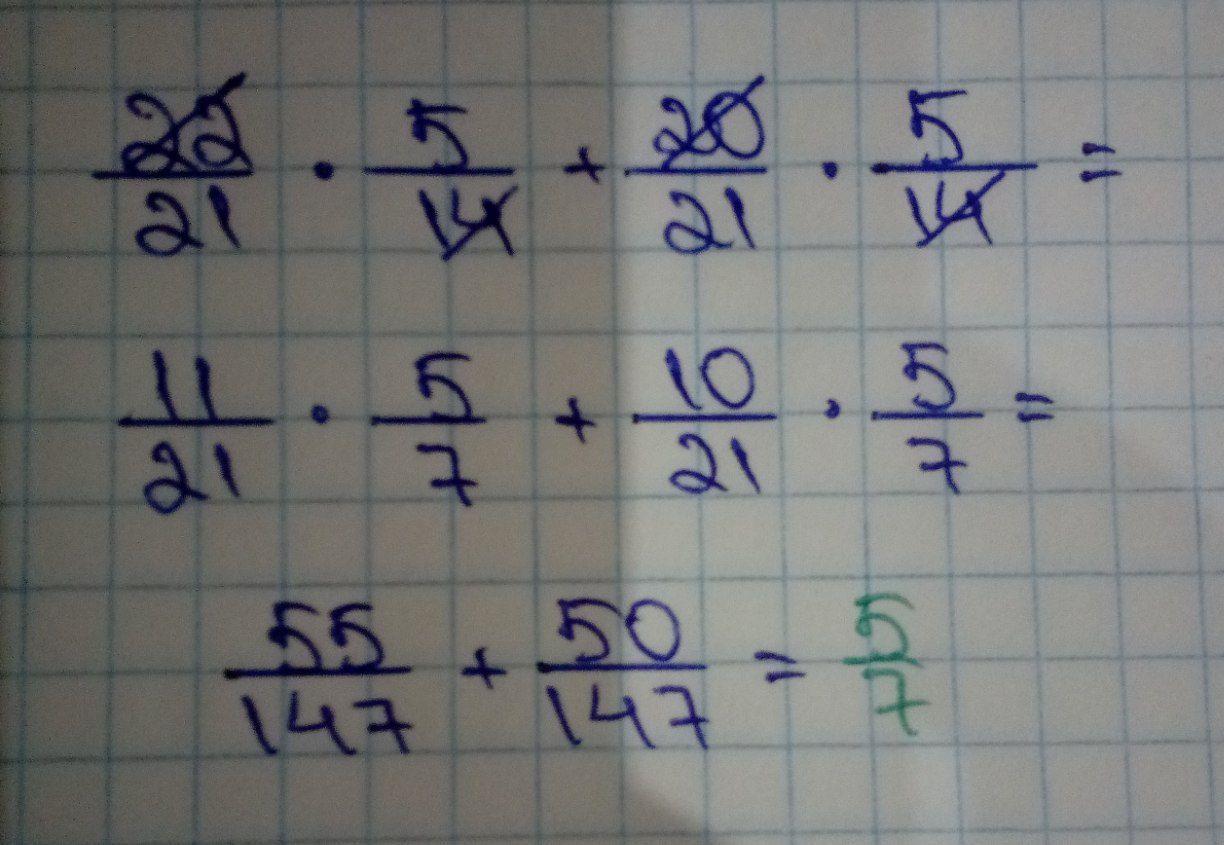 22/21 · 5/14 + 20/21 · 5/14 =
11/21 · 5/7 + 10/21 · 5/7 =
55/147 + 50/147 = 5/7